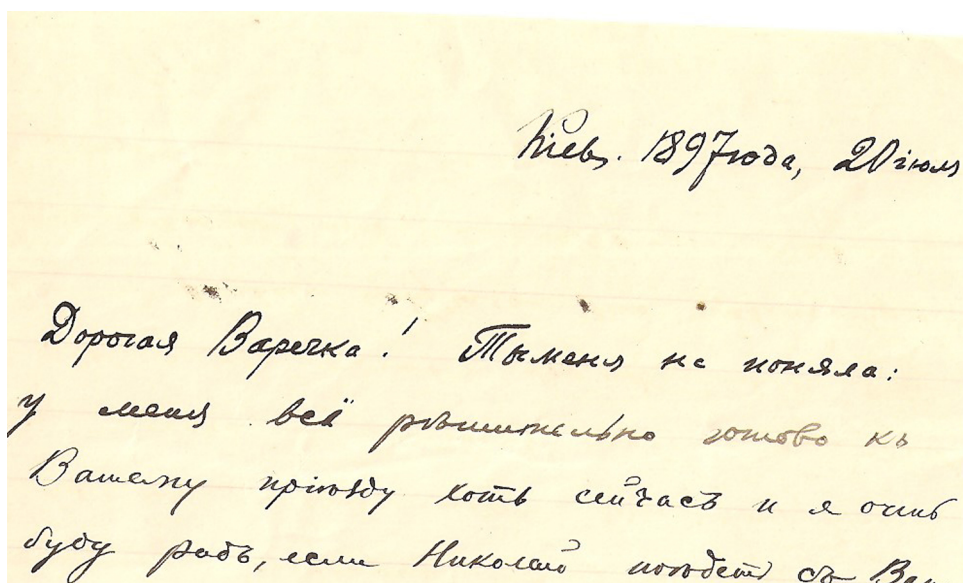 Кіевъ. 1897 года, 20 іюля
Дорогая Варечка! Ты меня не поняла:
у меня всё рѣшительно готово къ
Вашему пріѣзду хоть сейчасъ и я очень
буду радъ, если Николай поѣдетъ съ